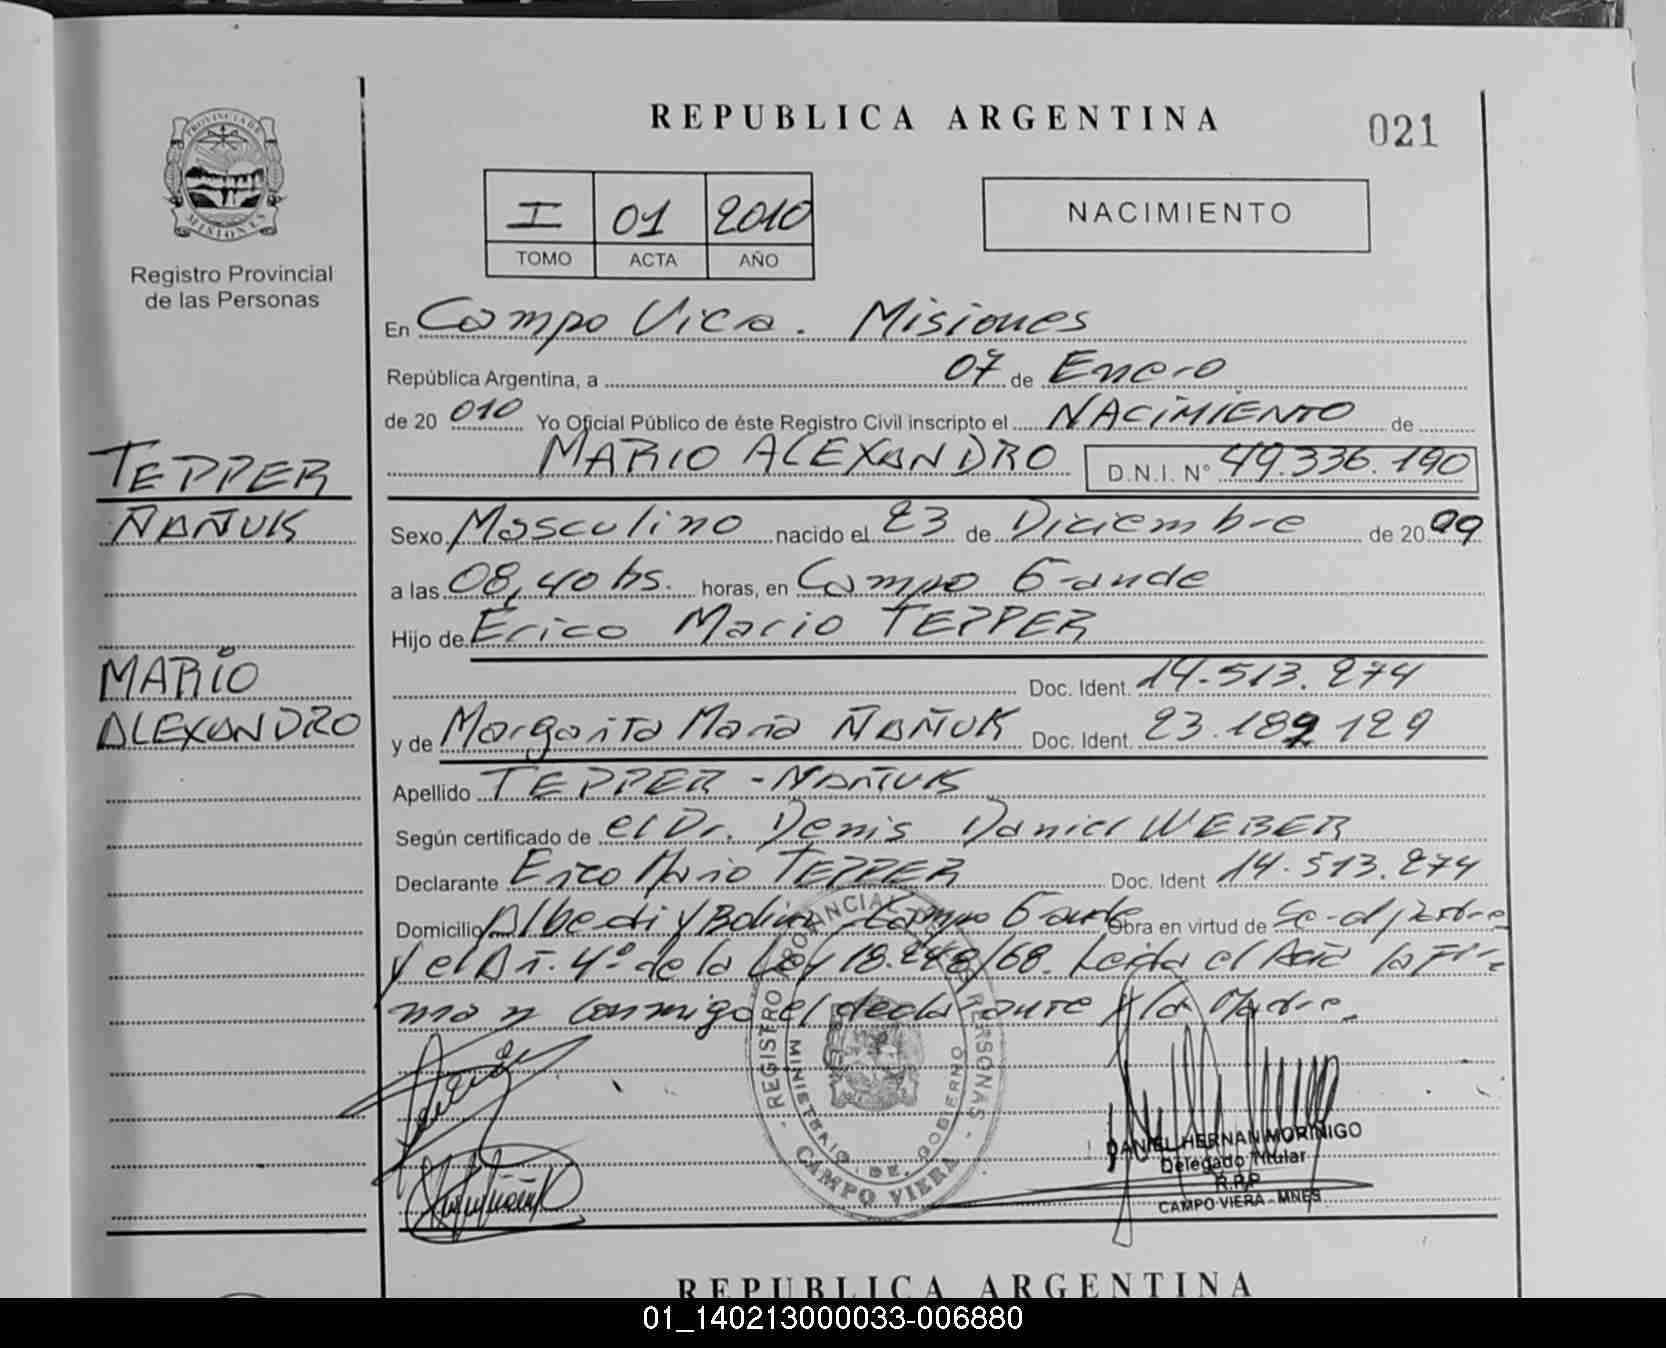 REPUBLICA ARGENTINA
021
PROVINCIA DE
MISIONES
Registro Provincial
de las Personas
I 01 2010
TOMO ACTA AÑO
NACIMIENTO
En Campo Viera. Misiones
República Argentina, a 07 de Enero
de 20 010 Yo Oficial Público de éste Registro Civil inscripto el NACIMIENTO de
MARIO ALEXANDRO D.N.I. N° 49.336.190
TEPPER
ÑAÑUK
MARIO
ALEXANDRO
Sexo Masculino nacido el 23 de Diciembre de 20 09
a las 08,40 hs. horas, en Campo Grande
Hijo de Erico Mario TEPPER
Doc. Ident. 14.513.274
y de Margarita Maria ÑAÑUK Doc. Ident. 23.189 129
Apellido TEPPER - ÑAÑUK
Según certificado de el Dr. Denis Daniel WEBER
Declarante Erico Mario TEPPER Doc. Ident 14.513.274
Domicilio Alberdi y Bolivar Campo Grande Obra en virtud de Ser el padre
y el Art. 4° de la Ley 18.248/68. Leida el Acta la Fir
man conmigo el declarante y la Madre.
REGISTRO PROVINCIAL DE LAS PERSONAS
MINISTERIO DE GOBIERNO
CAMPO VIERA
DANIEL HERNAN MORINIGO
Delegado Titular
R.P.P.
CAMPO VIERA - MNES
REPUBLICA ARGENTINA
01_140213000033-006880